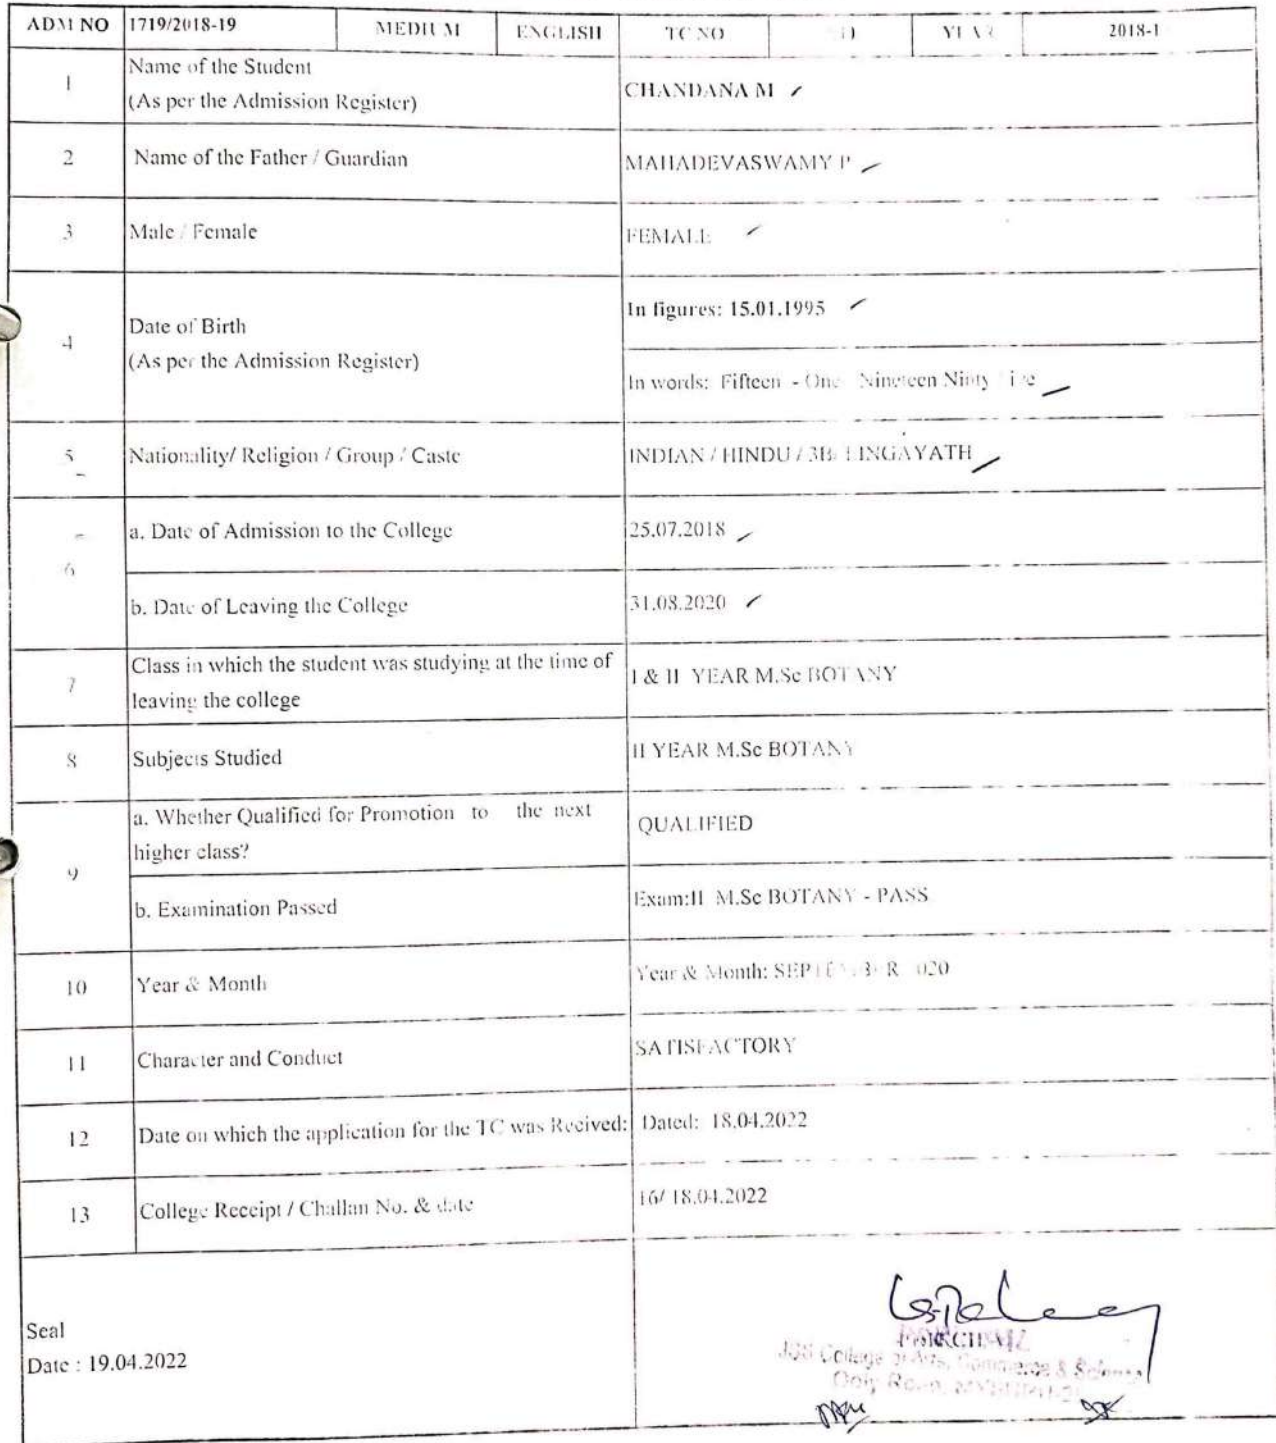 ADM NO 1719/2018-19 MEDIUM ENGLISH TC NO YEAR 2018-1
1 Name of the Student
(As per the Admission Register)
CHANDANA M
2 Name of the Father / Guardian MAHADEVASWAMY P
3 Male / Female FEMALE
4 Date of Birth
(As per the Admission Register)
In figures: 15.01.1995
In words: Fifteen - One Nineteen Ninty Five
5 Nationality/ Religion / Group / Caste INDIAN / HINDU / 3B/ LINGAYATH
6 a. Date of Admission to the College 25.07.2018
b. Date of Leaving the College 31.08.2020
7 Class in which the student was studying at the time of
leaving the college
I & II YEAR M.Sc BOTANY
8 Subjects Studied II YEAR M.Sc BOTANY
9 a. Whether Qualified for Promotion to the next
higher class?
QUALIFIED
b. Examination Passed Exam:II M.Sc BOTANY - PASS
10 Year & Month Year & Month: SEPTEMBER 2020
11 Character and Conduct SATISFACTORY
12 Date on which the application for the TC was Recived: Dated: 18.04.2022
13 College Receipt / Challan No. & date 16/ 18.04.2022
Seal
Date : 19.04.2022
PRINCIPAL
JSS College of Arts, Commerce & Science
Ooty Road,